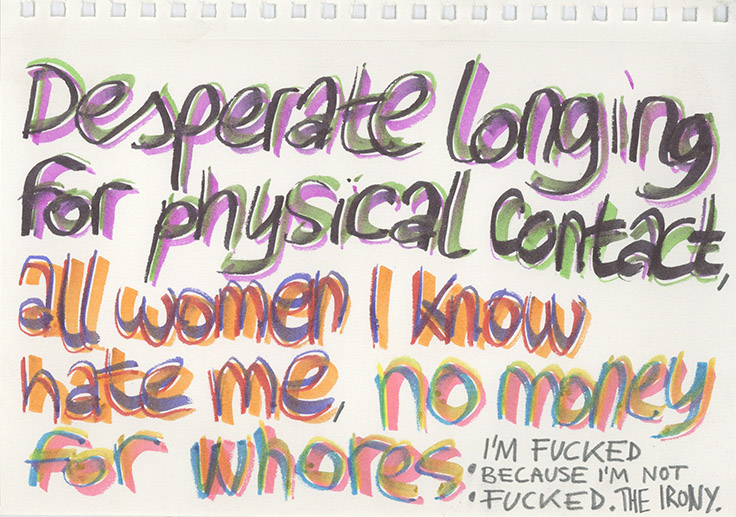 Desperate longing
for physical contact,
all women I know
hate me, no money
for whores.
I'M FUCKED
BECAUSE I'M NOT
FUCKED. THE IRONY.